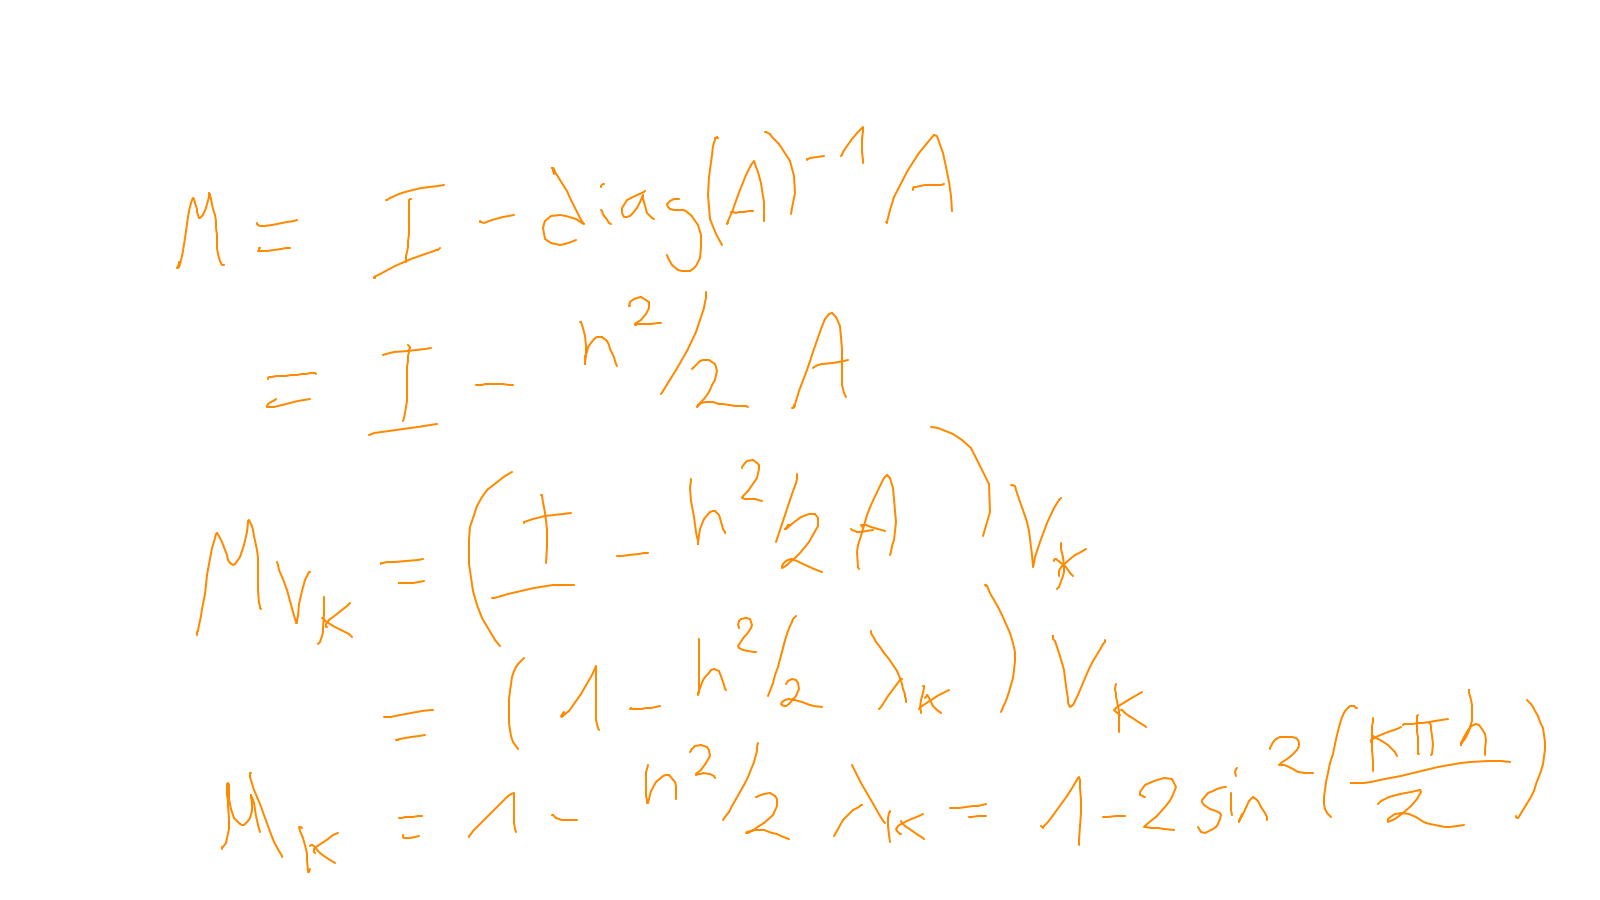 M = I - diag(A)^{-1} A
= I - h^2/2 A
M v_k = (I - h^2/2 A) v_k
= (1 - h^2/2 λ_k) v_k
μ_k = 1 - h^2/2 λ_k = 1 - 2 sin^2(kπh/2)